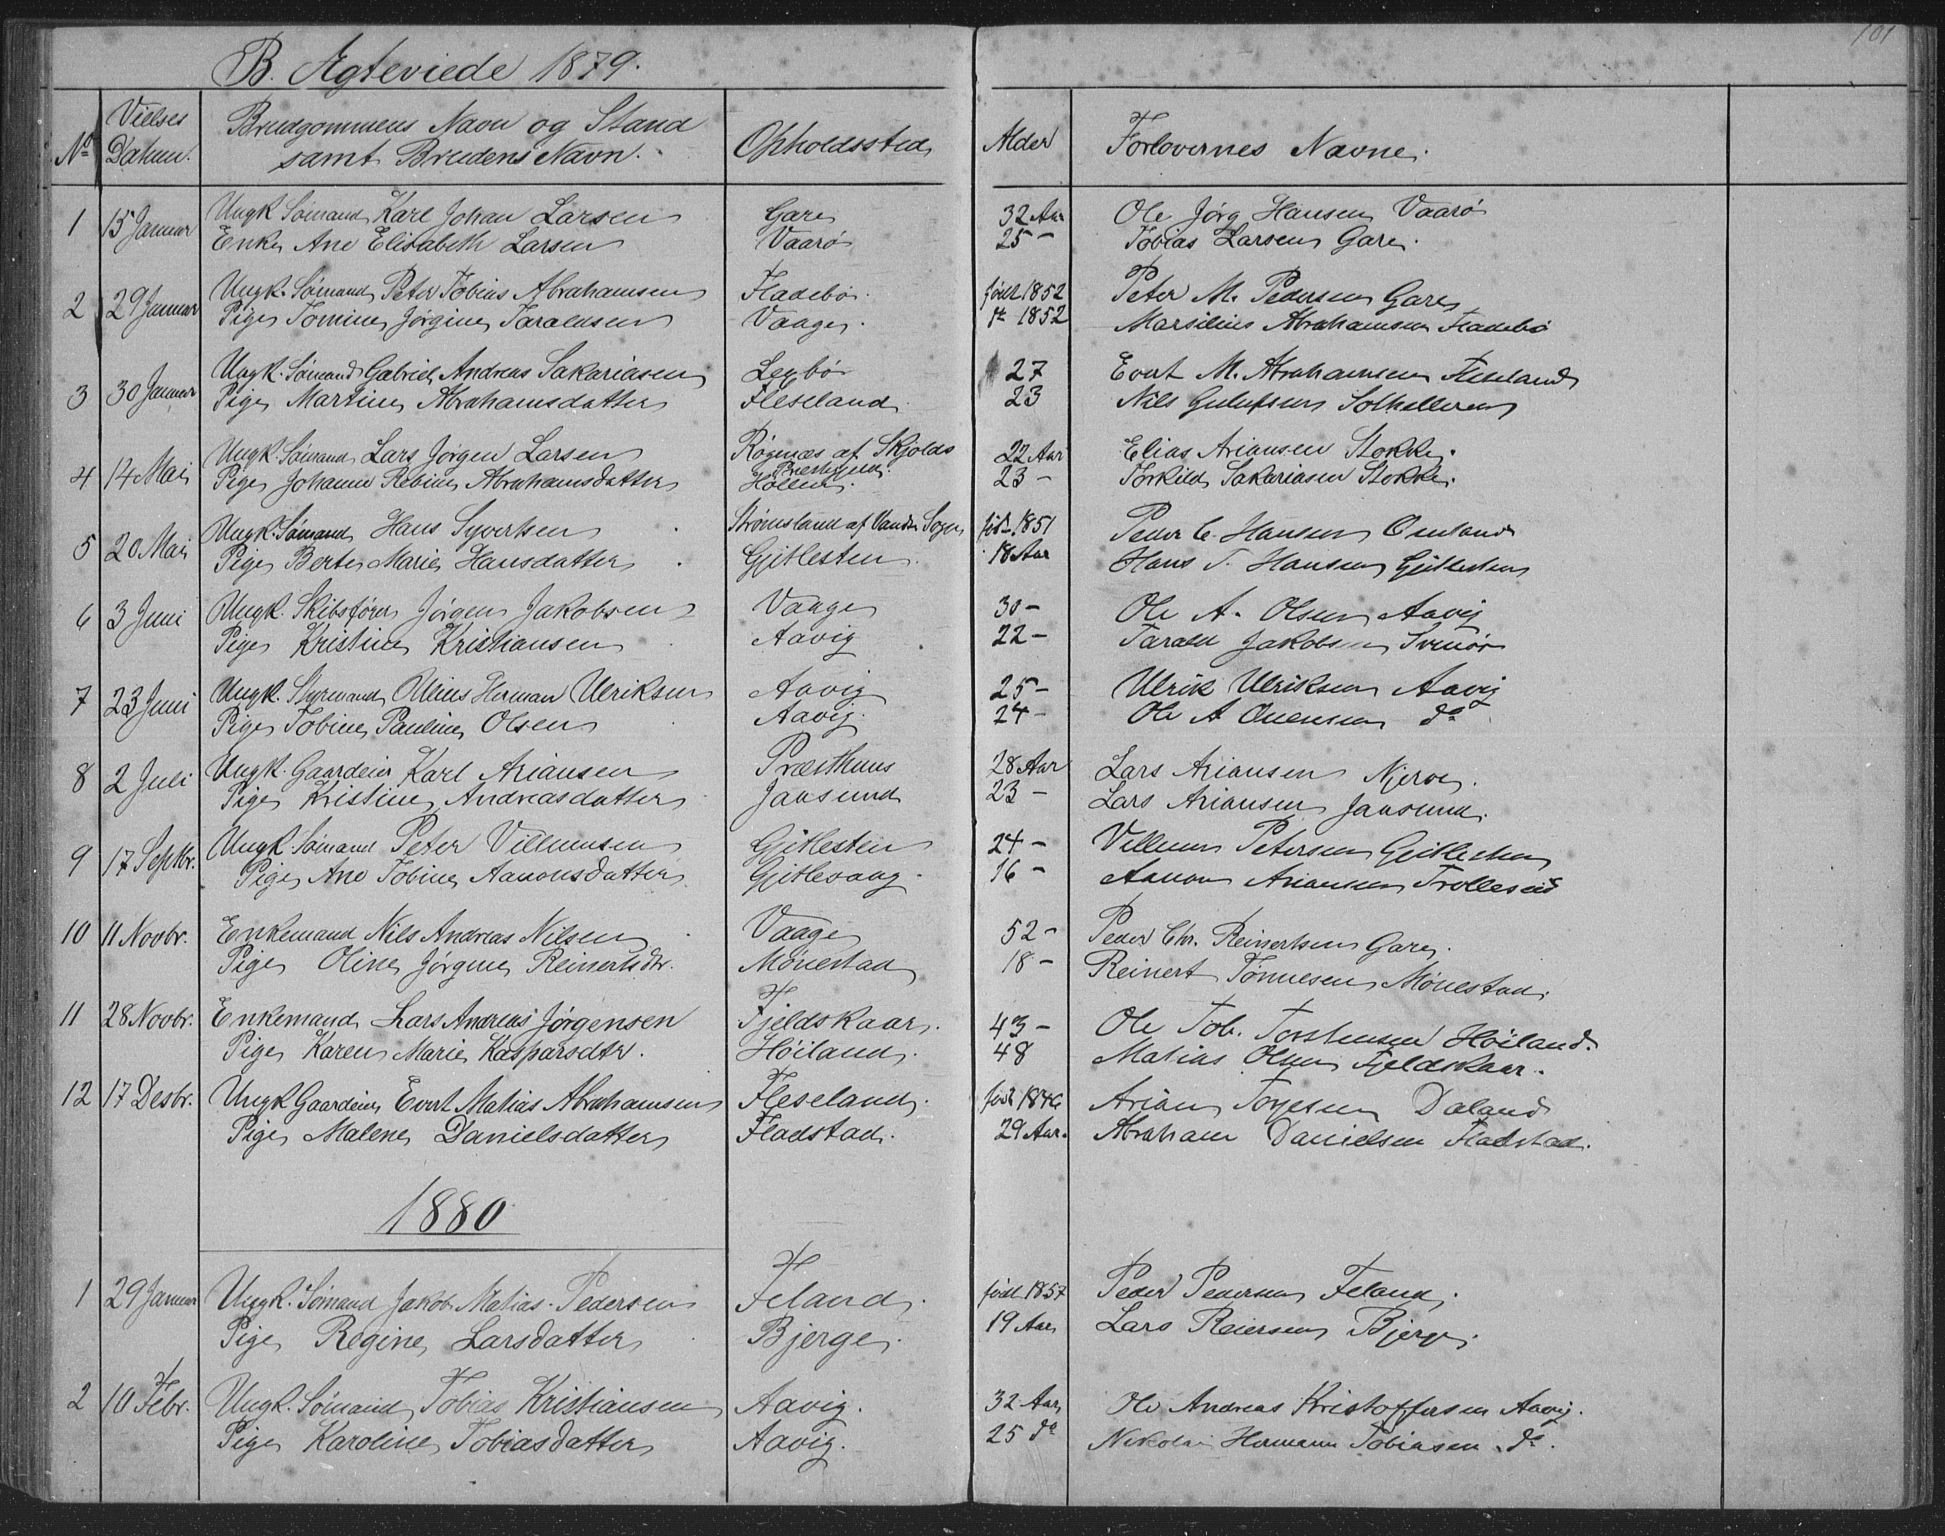 101
B. Ægteviede 1879.
No Vielses Datum. Brudgommens Navn og Stand samt Brudens Navn. Opholdssted Alder Forlovernes Navne.
1 15 Januar Ungk. Sømand Karl Johan Larsen Gare 32 Aar Ole Jørg Hansen Vaarø
Enke Ane Elisabeth Larsen Vaarø 25 – Tobias Larsen Gare.
2 29 Januar Ungk. Sømand Peter Tobias Abrahamsen Fladebø. født 1852 Peter M. Pedersen Gare
Pige Tomine Jørgine Taraldsen Vaage. 1852 Marsilius Abrahamsen Fladebø
3 30 Januar Ungk. Sømand Gabriel Andreas Sakariasen Legbø 27 Evert M. Abrahamsen Fleseland
Pige Martine Abrahamsdatter Fleseland 23 Nils
4 14 Mai Ungk. Sømand Lars Jørgen Larsen Røgenæs af Skjolds Præstegjeld. 22 Aar Elias Ariansen Stokke.
Pige Johanne Rebine Abrahamsdatter Høllen. 23 – Torkild Sakariasen Stokke.
5 20 Mai Ungk. Sømand Hans Syvertsen Strømsland af Vandse Sogn født 1851 Peder C. Hansen Omland
Pige Berte Marie Hansdatter Gjitlesten. 18 Aar Hans T. Hansen Gjitlesten
6 3 Juni Ungk. Skibsfører Jørgen Jakobsen Vaage 30 – Ole A. Olsen Aavig
Pige Kristine Kristiansen Aavig 22 – Tarald Jakobsen Svinør
7 23 Juni Ungk. Styrmand Olius Herman Ulriksen Aavig 25 – Ulrik Ulriksen Aavig
Pige Tobine Pauline Olsen Aavig. 24 – Ole A do
8 2 Juli Ungk. Gaardeier Karl Ariansen Præsthuus 28 Aar Lars Ariansen Njerve.
Pige Kristine Andreasdatter Jaasund 23 – Lars Ariansen Jaasund.
9 17 Septbr. Ungk. Sømand Peter Villumsen Gjitlesten 24 – Villum Petersen Gjitlesten
Pige Ane Tobine Aanonsdatter Gjitlevaag. 16 – Aanon Ariansen Trolleseid
10 11 Novbr. Enkemand Nils Andreas Nilsen Vaage 52 – Peder Chr. Reinertsen Gare.
Pige Oline Jørgine Reinertsdtr. Mønestad 18 – Reinert Tønnesen Mønestad.
11 28 Novbr. Enkemand Lars Andreas Jørgensen Fjeldskaar. 43 – Ole Tob. Torstensen Høiland.
Pige Karen Marie Kasparsdtr. Høiland. 48 Matias Olsen Fjeldskaar.
12 17 Desbr. Ungk Gaardeier Evert Matias Abrahamsen Fleseland. født 1846 Arian Torjesen Daland
Pige Malene Danielsdatter Fladstad. 29 Aar. Abraham Danielsen Fladstad.
1880
1 29 Januar Ungk. Sømand Jakob Matias Pedersen Feland. født 1857 Peder Pedersen Feland.
Pige Regine Larsdatter Bjerge. 19 Aar Lars Reiersen Bjerge.
2 10 Febr. Ungk. Sømand Tobias Kristiansen Aavig. 32 Aar Ole Andreas Kristoffersen Aavig.
Pige Karoline Tobiasdatter Aavig. 25 do Nikolai Hermann Tobiasen do.